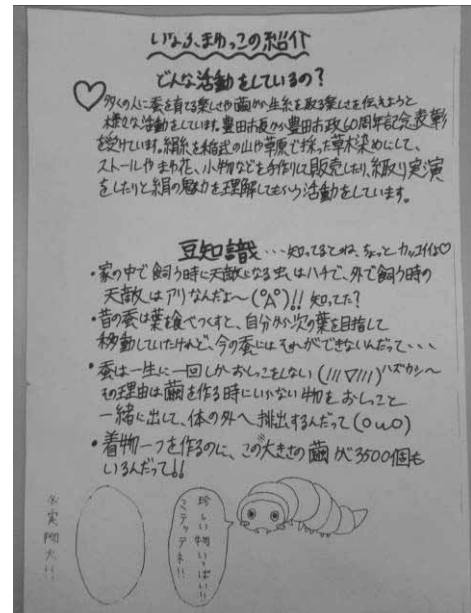 いなぶ、まゆっこの紹介
どんな活動をしているの?
多くの人に蚕を育てる楽しさや繭から生糸を取る楽しさを伝えようと
様々な活動をしています。豊田市長から豊田市政60周年記念表彰
を受けています。絹糸を稲武の山や草原で採った草木染めにして、
ストールやまゆ花、小物などを手作りして販売したり、糸取り実演
をしたりと絹の魅力を理解してもらう活動をしています。
豆知識・・・知ってるとね、ちょっとカッコイイよ♡
・家の中で飼う時に天敵になる虫はハチで、外で飼う時の
天敵はアリなんだよ〜(°A°)!! 知ってた?
・昔の蚕は葉を食べつくすと、自分から次の葉を目指して
移動していたけれど、今の蚕にはそれができないんだって・・・
・蚕は一生に一回しかおしっこをしない(///▽///)ハズカシ〜
その理由は繭を作る時にいらない物をおしっこと
一緒に出して、体の外へ排出するんだって(oωo)
・着物一つを作るのに、この※大きさの繭が3500個も
いるんだって!!
※実物大!!
珍しい物いっぱい!!
ミテッテネ!!